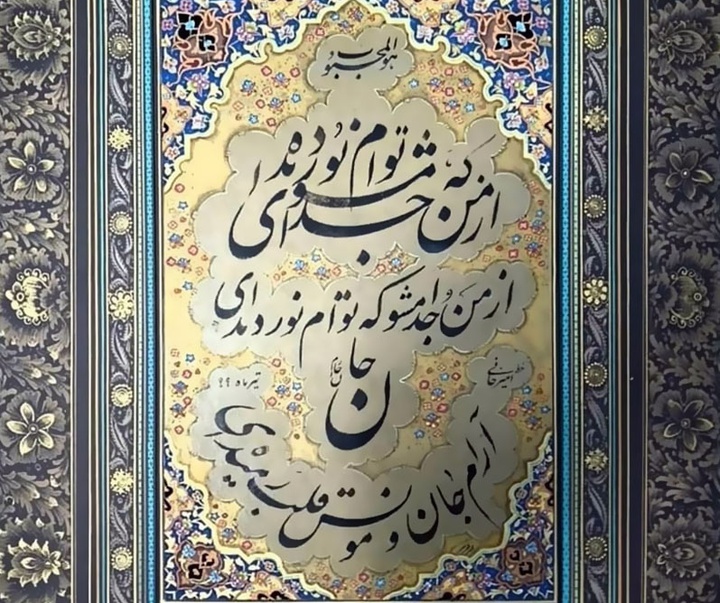 هوالمحبوب
از من جدا مشو که توام نور دیده‌ای
از من جدا مشو که توام نور دیده‌ای
جان
خط امیرخانی
تیرماه ۹۹
آرام جان و مونس قلب رمیده‌ای